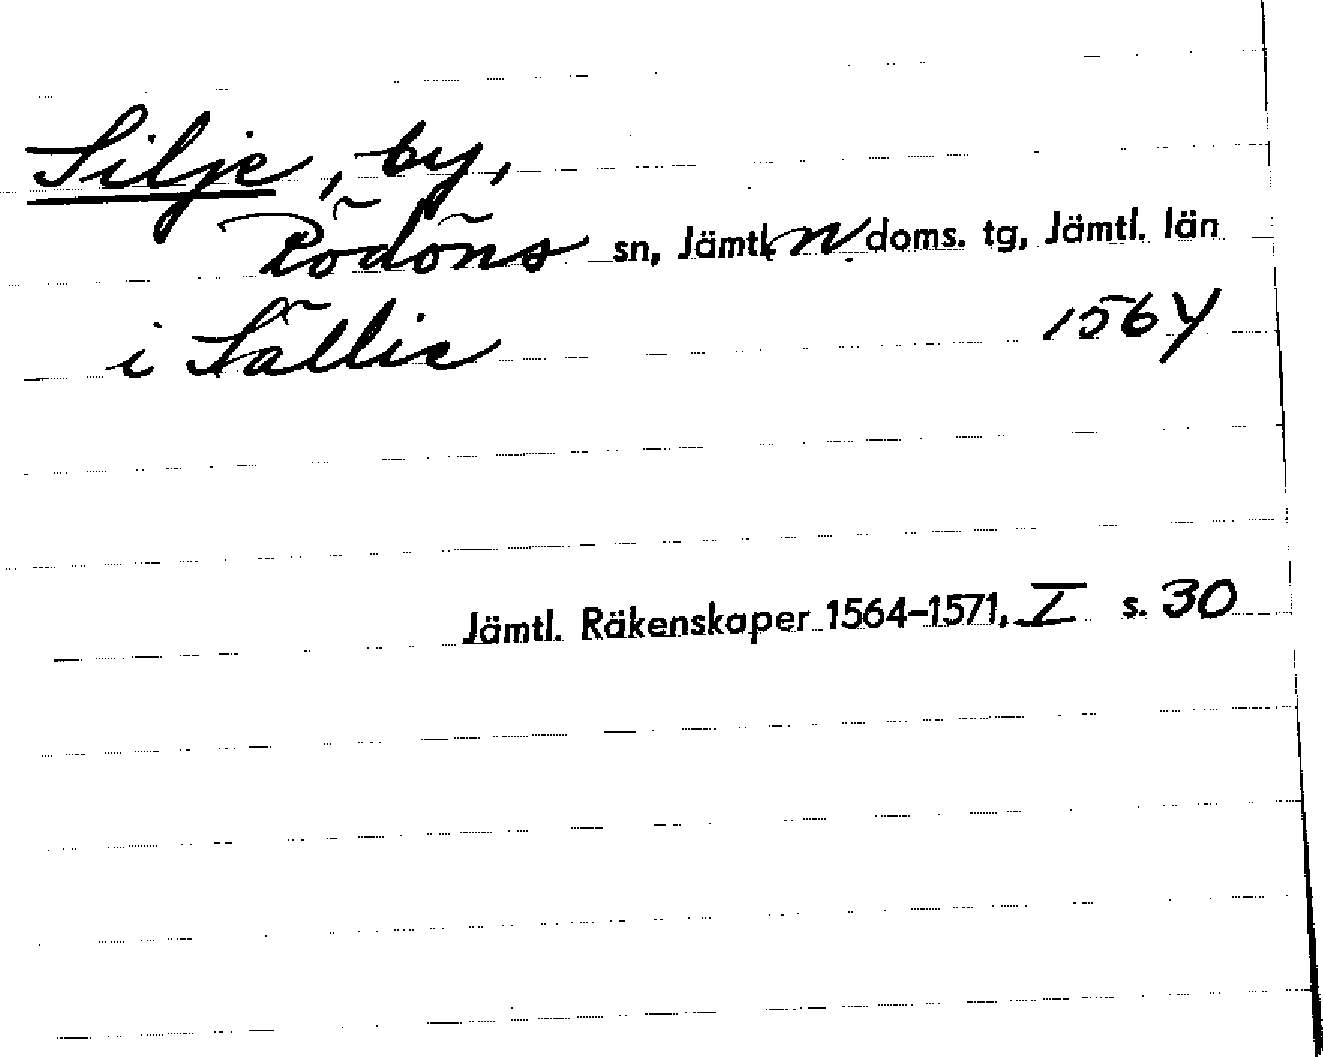 Silje, by,
Rödöns sn, Jämtl. n. doms. tg, Jämtl. län
i Sällie 1564
Jämtl. Räkenskaper 1564-1571, I s. 30